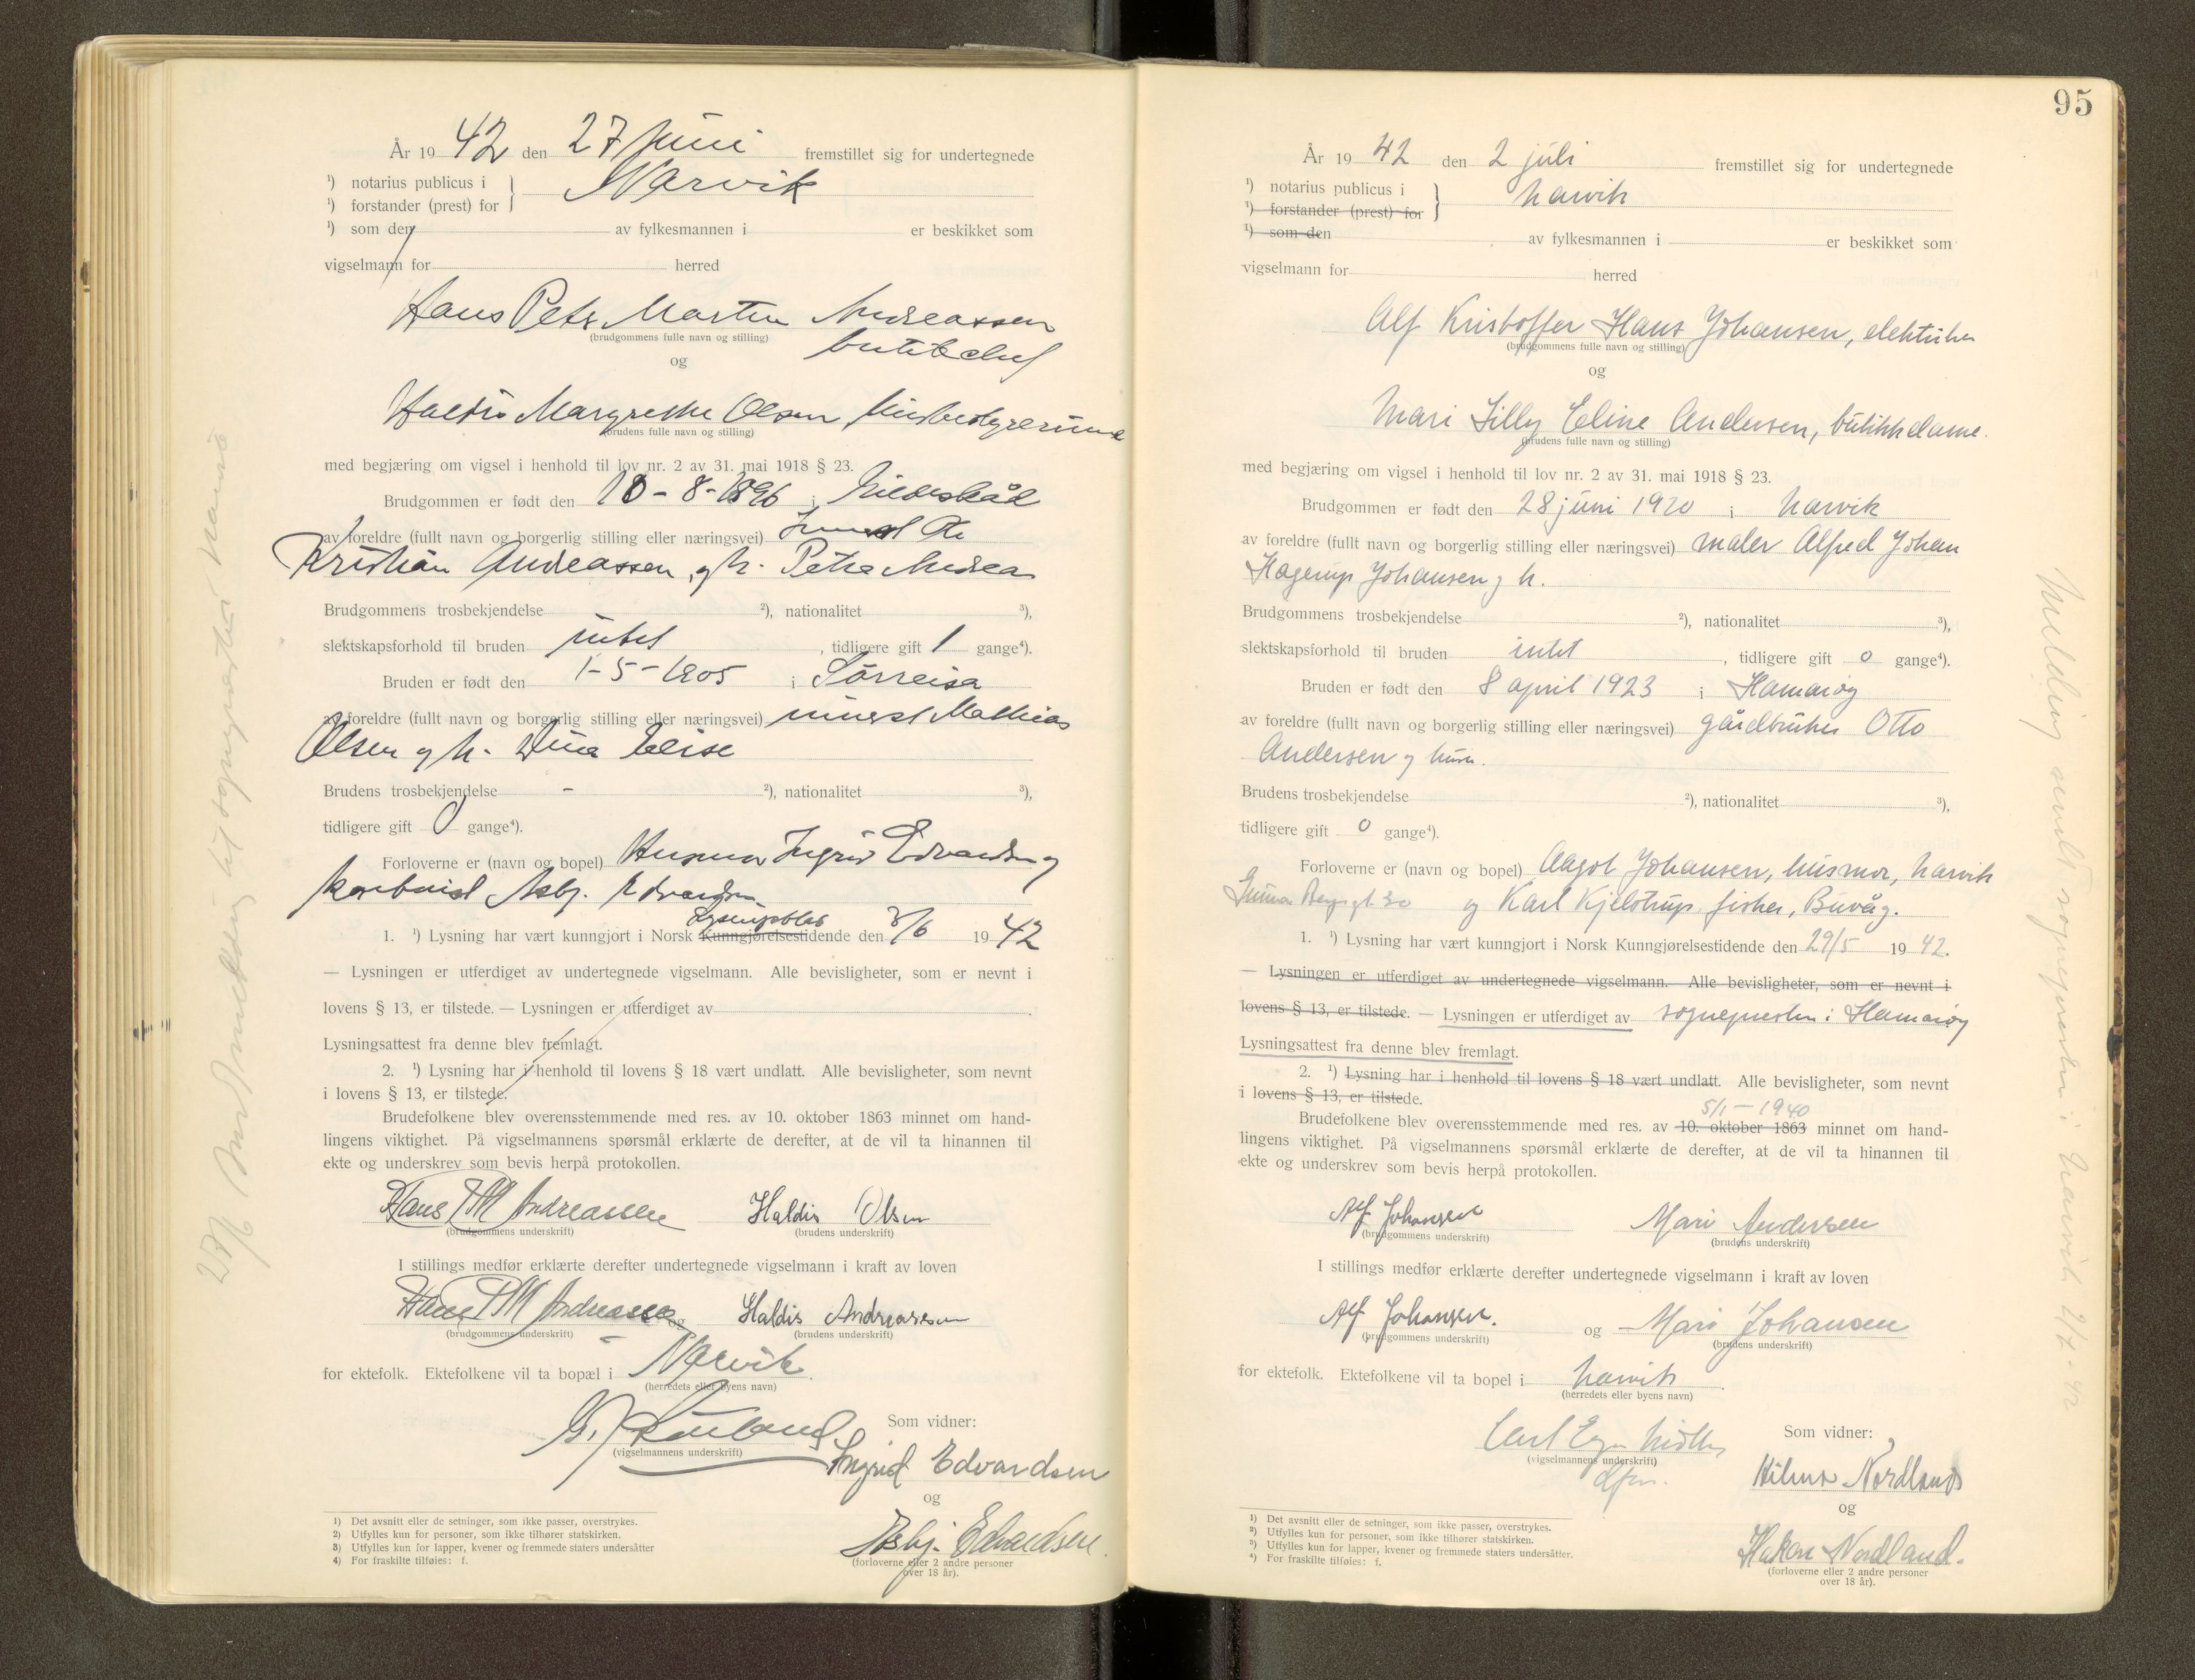 År 1942 den 27 Juni fremstillet sig for undertegnede
¹) notarius publicus i Narvik
¹) forstander (prest) for
¹) som den av fylkesmannen i er beskikket som
vigselmann for herred
Hans Peter Martin Andreassen
(brudgommens fulle navn og stilling)
og
Haldis Margrethe Olsen, husbestyrerinne
(brudens fulle navn og stilling)
med begjæring om vigsel i henhold til lov nr. 2 av 31. mai 1918 § 23.
Brudgommen er født den 10-8-1896 i Gildeskål
av foreldre (fullt navn og borgerlig stilling eller næringsvei)
Kristian Andreassen og h. Petra Andrea
Brudgommens trosbekjendelse ²), nationalitet ³),
slektskapsforhold til bruden intet, tidligere gift 1 gange⁴).
Bruden er født den 1-5-1905 i Sørreisa
av foreldre (fullt navn og borgerlig stilling eller næringsvei) Mathias
Olsen og h. Elise
Brudens trosbekjendelse - ²), nationalitet ³),
tidligere gift 0 gange⁴).
Forloverne er (navn og bopel) Husmor Ingrid Edvardsen og
Asbj. Edvardsen
Lysningsblad
1. ¹) Lysning har vært kunngjort i Norsk Kunngjørelsestidende den 3/6 1942
— Lysningen er utferdiget av undertegnede vigselmann. Alle bevisligheter, som er nevnt i
lovens § 13, er tilstede. — Lysningen er utferdiget av
Lysningsattest fra denne blev fremlagt.
2. ¹) Lysning har i henhold til lovens § 18 vært undlatt. Alle bevisligheter, som nevnt
i lovens § 13, er tilstede.
Brudefolkene blev overensstemmende med res. av 10. oktober 1863 minnet om hand-
lingens viktighet. På vigselmannens spørsmål erklærte de derefter, at de vil ta hinannen til
ekte og underskrev som bevis herpå protokollen.
Hans P M Andreassen Haldis Olsen
(brudgommens underskrift) (brudens underskrift)
I stillings medfør erklærte derefter undertegnede vigselmann i kraft av loven
Hans P M Andreassen og Haldis Andreassen
(brudgommens underskrift) (brudens underskrift)
for ektefolk. Ektefolkene vil ta bopæl i Narvik.
(herredets eller byens navn)
Som vidner:
(vigselmannens underskrift)
Ingrid Edvardsen
og
Asbj. Edvardsen.
(forloverne eller 2 andre personer
over 18 år).
1) Det avsnitt eller de setninger, som ikke passer, overstrykes.
2) Utfylles kun for personer, som ikke tilhører statskirken.
3) Utfylles kun for lapper, kvener og fremmede staters undersåtter
4) For fraskilte tilføies: f.
95
År 1942 den 2 juli fremstillet sig for undertegnede
¹) notarius publicus i Narvik
¹) forstander (prest) for
¹) som den av fylkesmannen i er beskikket som
vigselmann for herred
Alf Kristoffer Hans Johansen, elektriker
(brudgommens fulle navn og stilling)
og
Mari Lilly Eline Andersen, butikkdame.
(brudens fulle navn og stilling)
med begjæring om vigsel i henhold til lov nr. 2 av 31. mai 1918 § 23.
Brudgommen er født den 28 juni 1920 i Narvik
av foreldre (fullt navn og borgerlig stilling eller næringsvei) maler Alfred Johan
Hagerup Johansen og h.
Brudgommens trosbekjendelse ²), nationalitet ³),
slektskapsforhold til bruden intet, tidligere gift 0 gange⁴).
Bruden er født den 8 april 1923 i Hamarøy
av foreldre (fullt navn og borgerlig stilling eller næringsvei) gårdbruker Otto
Andersen og hustru.
Brudens trosbekjendelse ²), nationalitet ³),
tidligere gift 0 gange⁴).
Forloverne er (navn og bopel) Aagot Johansen, husmor, Narvik
og Karl Kjelstrup fisker, Buvåg.
1. ¹) Lysning har vært kunngjort i Norsk Kunngjørelsestidende den 29/5 1942.
— Lysningen er utferdiget av undertegnede vigselmann. Alle bevisligheter, som er nevnt i
lovens § 13, er tilstede. — Lysningen er utferdiget av sognepresten i Hamarøy
Lysningsattest fra denne blev fremlagt.
2. ¹) Lysning har i henhold til lovens § 18 vært undlatt. Alle bevisligheter, som nevnt
i lovens § 13, er tilstede.
5/1 - 1940
Brudefolkene blev overensstemmende med res. av 10. oktober 1863 minnet om hand-
lingens viktighet. På vigselmannens spørsmål erklærte de derefter, at de vil ta hinannen til
ekte og underskrev som bevis herpå protokollen.
Alf Johansen Mari Andersen
(brudgommens underskrift) (brudens underskrift)
I stillings medfør erklærte derefter undertegnede vigselmann i kraft av loven
Alf Johansen. og Mari Johansen
(brudgommens underskrift) (brudens underskrift)
for ektefolk. Ektefolkene vil ta bopel i Narvik.
(herredets eller byens navn)
Som vidner:
(vigselmannens underskrift)
Hilma Nordland
og
Håkon Nordland.
(forloverne eller 2 andre personer
over 18 år).
1) Det avsnitt eller de setninger, som ikke passer, overstrykes.
2) Utfylles kun for personer, som ikke tilhører statskirken.
3) Utfylles kun for lapper, kvener og fremmede staters undersåtter.
4) For fraskilte tilføies: f.
Melding sendt sognepresten i Narvik 2/7-42